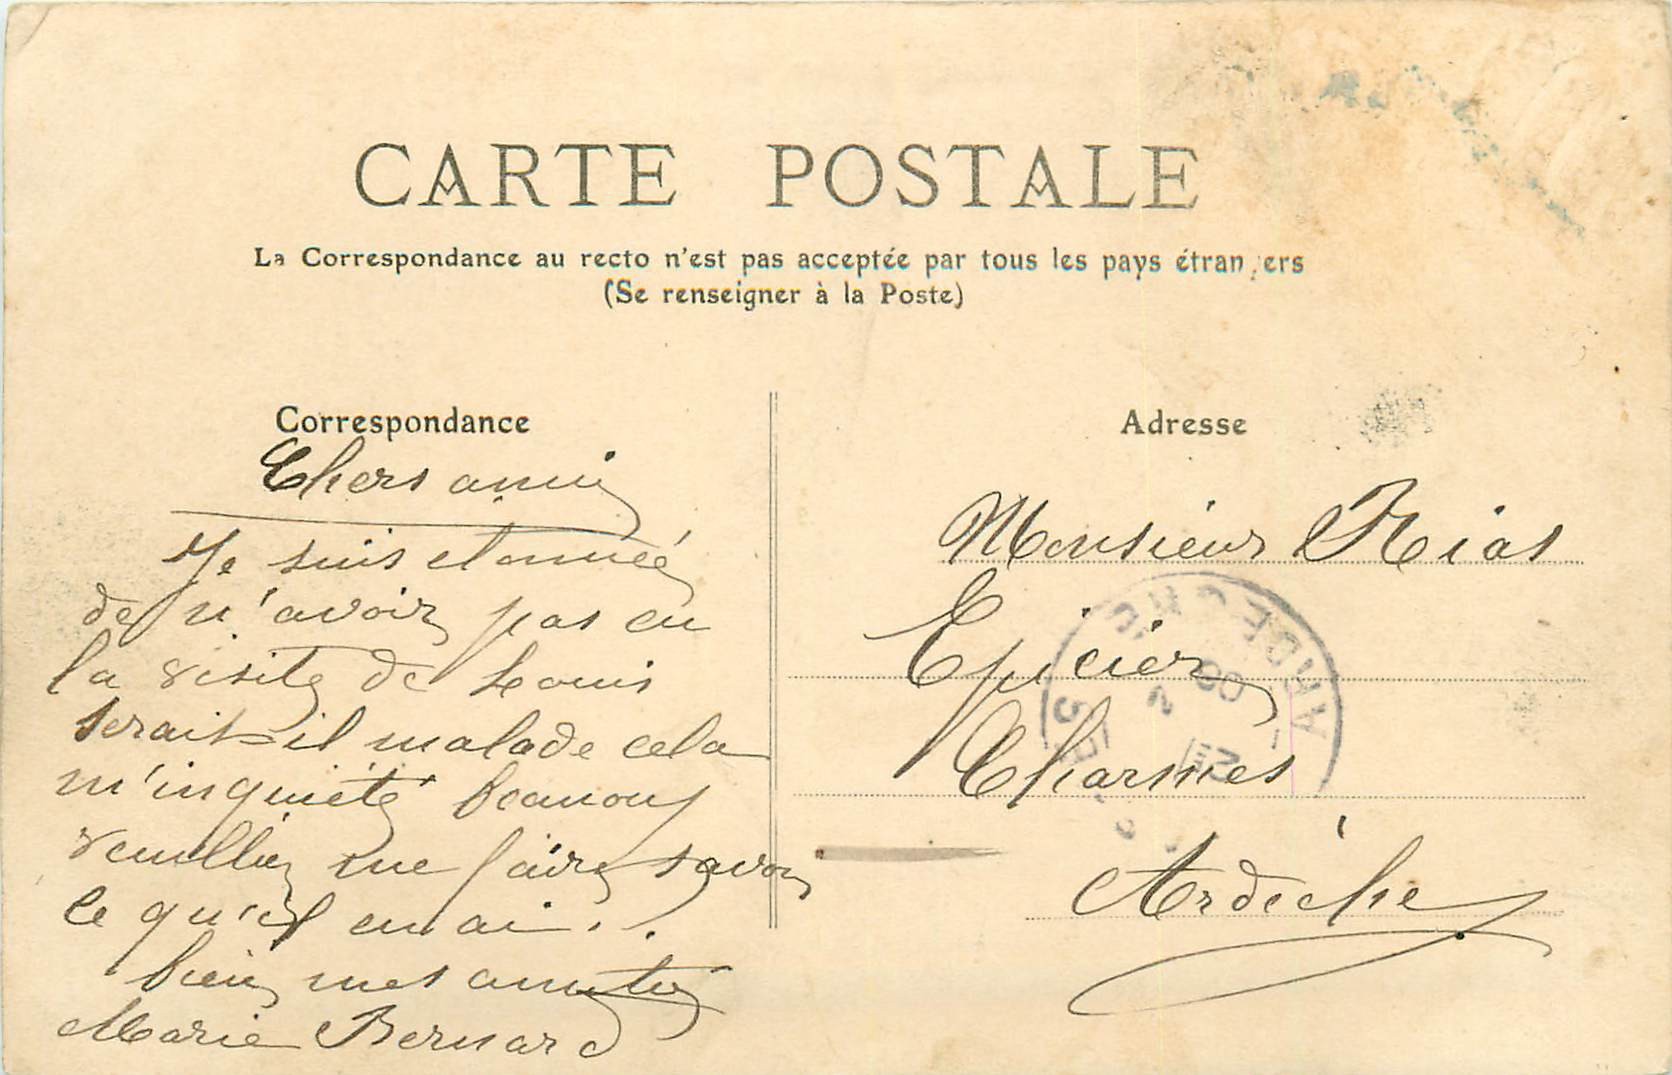 CARTE POSTALE
La Correspondance au recto n'est pas acceptée par tous les pays étran ers
(Se renseigner à la Poste)
Correspondance
Chers amis
Je suis etonnéé
de n'avoir pas eu
la visite de Louis
serait-il malade cela
m'inquiéte beaucoup
veuilliez me faire savoir
ce qu'il en ai . .
bien mes amitiés
Marie Bernard
Adresse
Monsieur Rias
Epicier
Charmes
Ardèche
ARDECHE